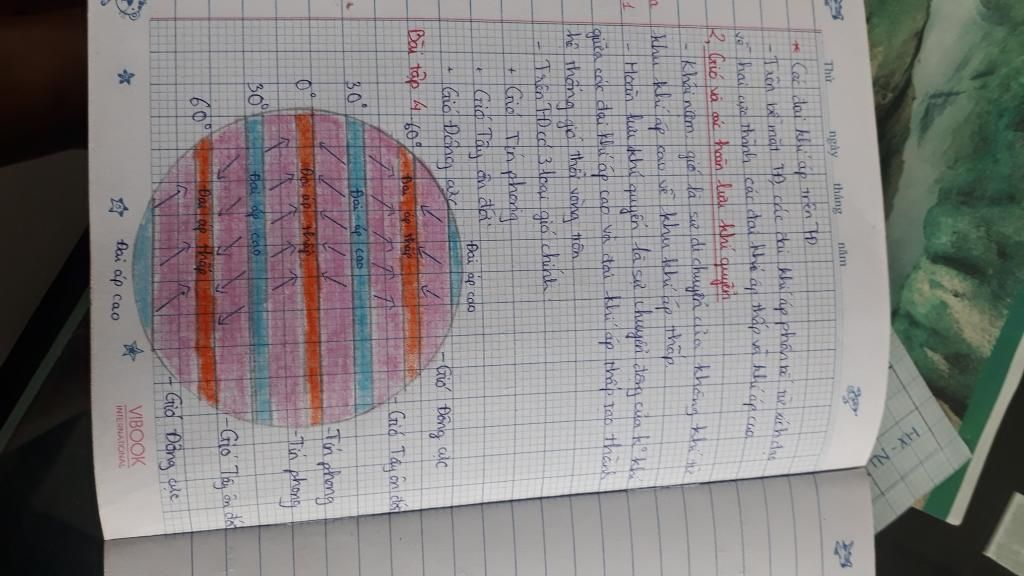 Thứ ngày tháng năm
* Các đai khí áp trên TĐ
- Trên bề mặt TĐ các đai khí áp phân bố từ xích đạo
về hai cực thành các đai khí áp thấp và khí áp cao
2, Gió và các hoàn lưu khí quyển
- Khái niệm gió là sự di chuyển của không khí từ
khu khí áp cao về khu khí áp thấp
- Hoàn lưu khí quyển là sự chuyển động của k² khí
giữa các đai khí áp cao và đai khí áp thấp tạo thành
hệ thống gió thổi vòng tròn
- Trên TĐ có 3 loại gió chính
+ Gió Tín phong
+ Gió Tây ôn đới
+ Gió Đông cực
Bài tập 4
Đai áp cao
- Gió Đông cực
60°
Đai áp thấp
- Gió Tây ôn đới
30°
Đai áp cao
- Tín phong
0°
Đai áp thấp
- Tín phong
30°
Đai áp cao
- Gió Tây ôn đới
60°
Đai áp thấp
- Gió Đông cực
Đai áp cao
VIBOOK
INTERNATIONAL